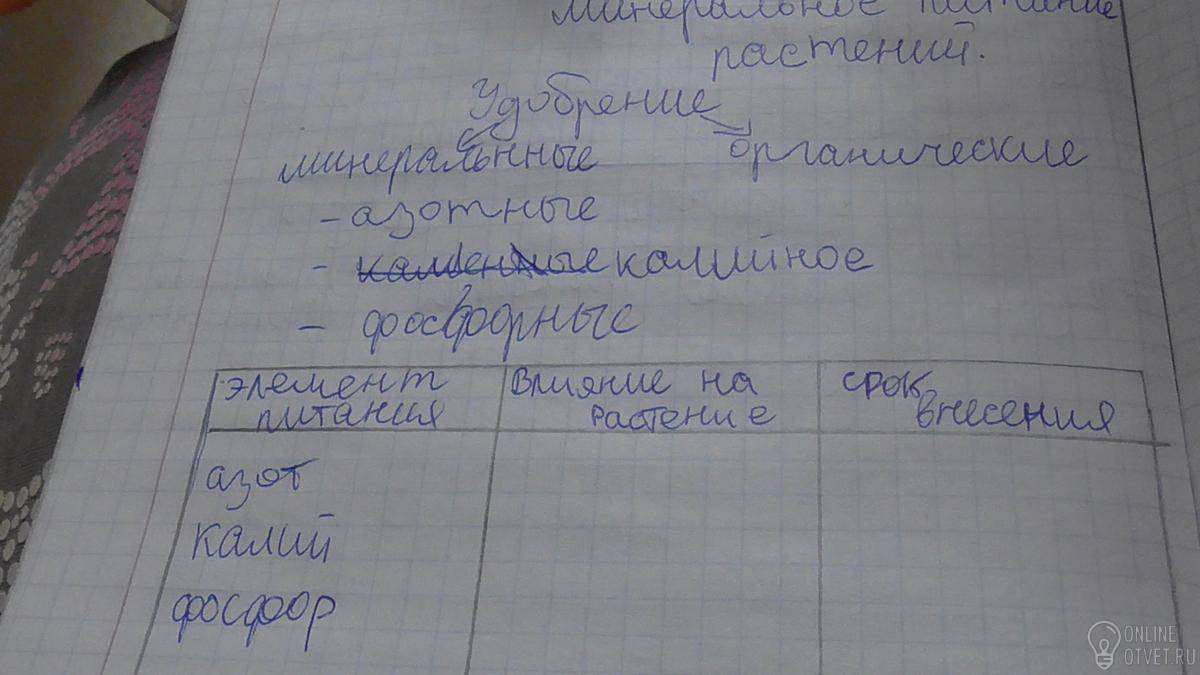 минеральное питание
растений.
Удобрение
минеральнные органические
- азотные
- калийное
- фосфорные
элемент питания
Влияние на растение
срок внесения
азот
калий
фосфор
ONLINE
OTVET.RU